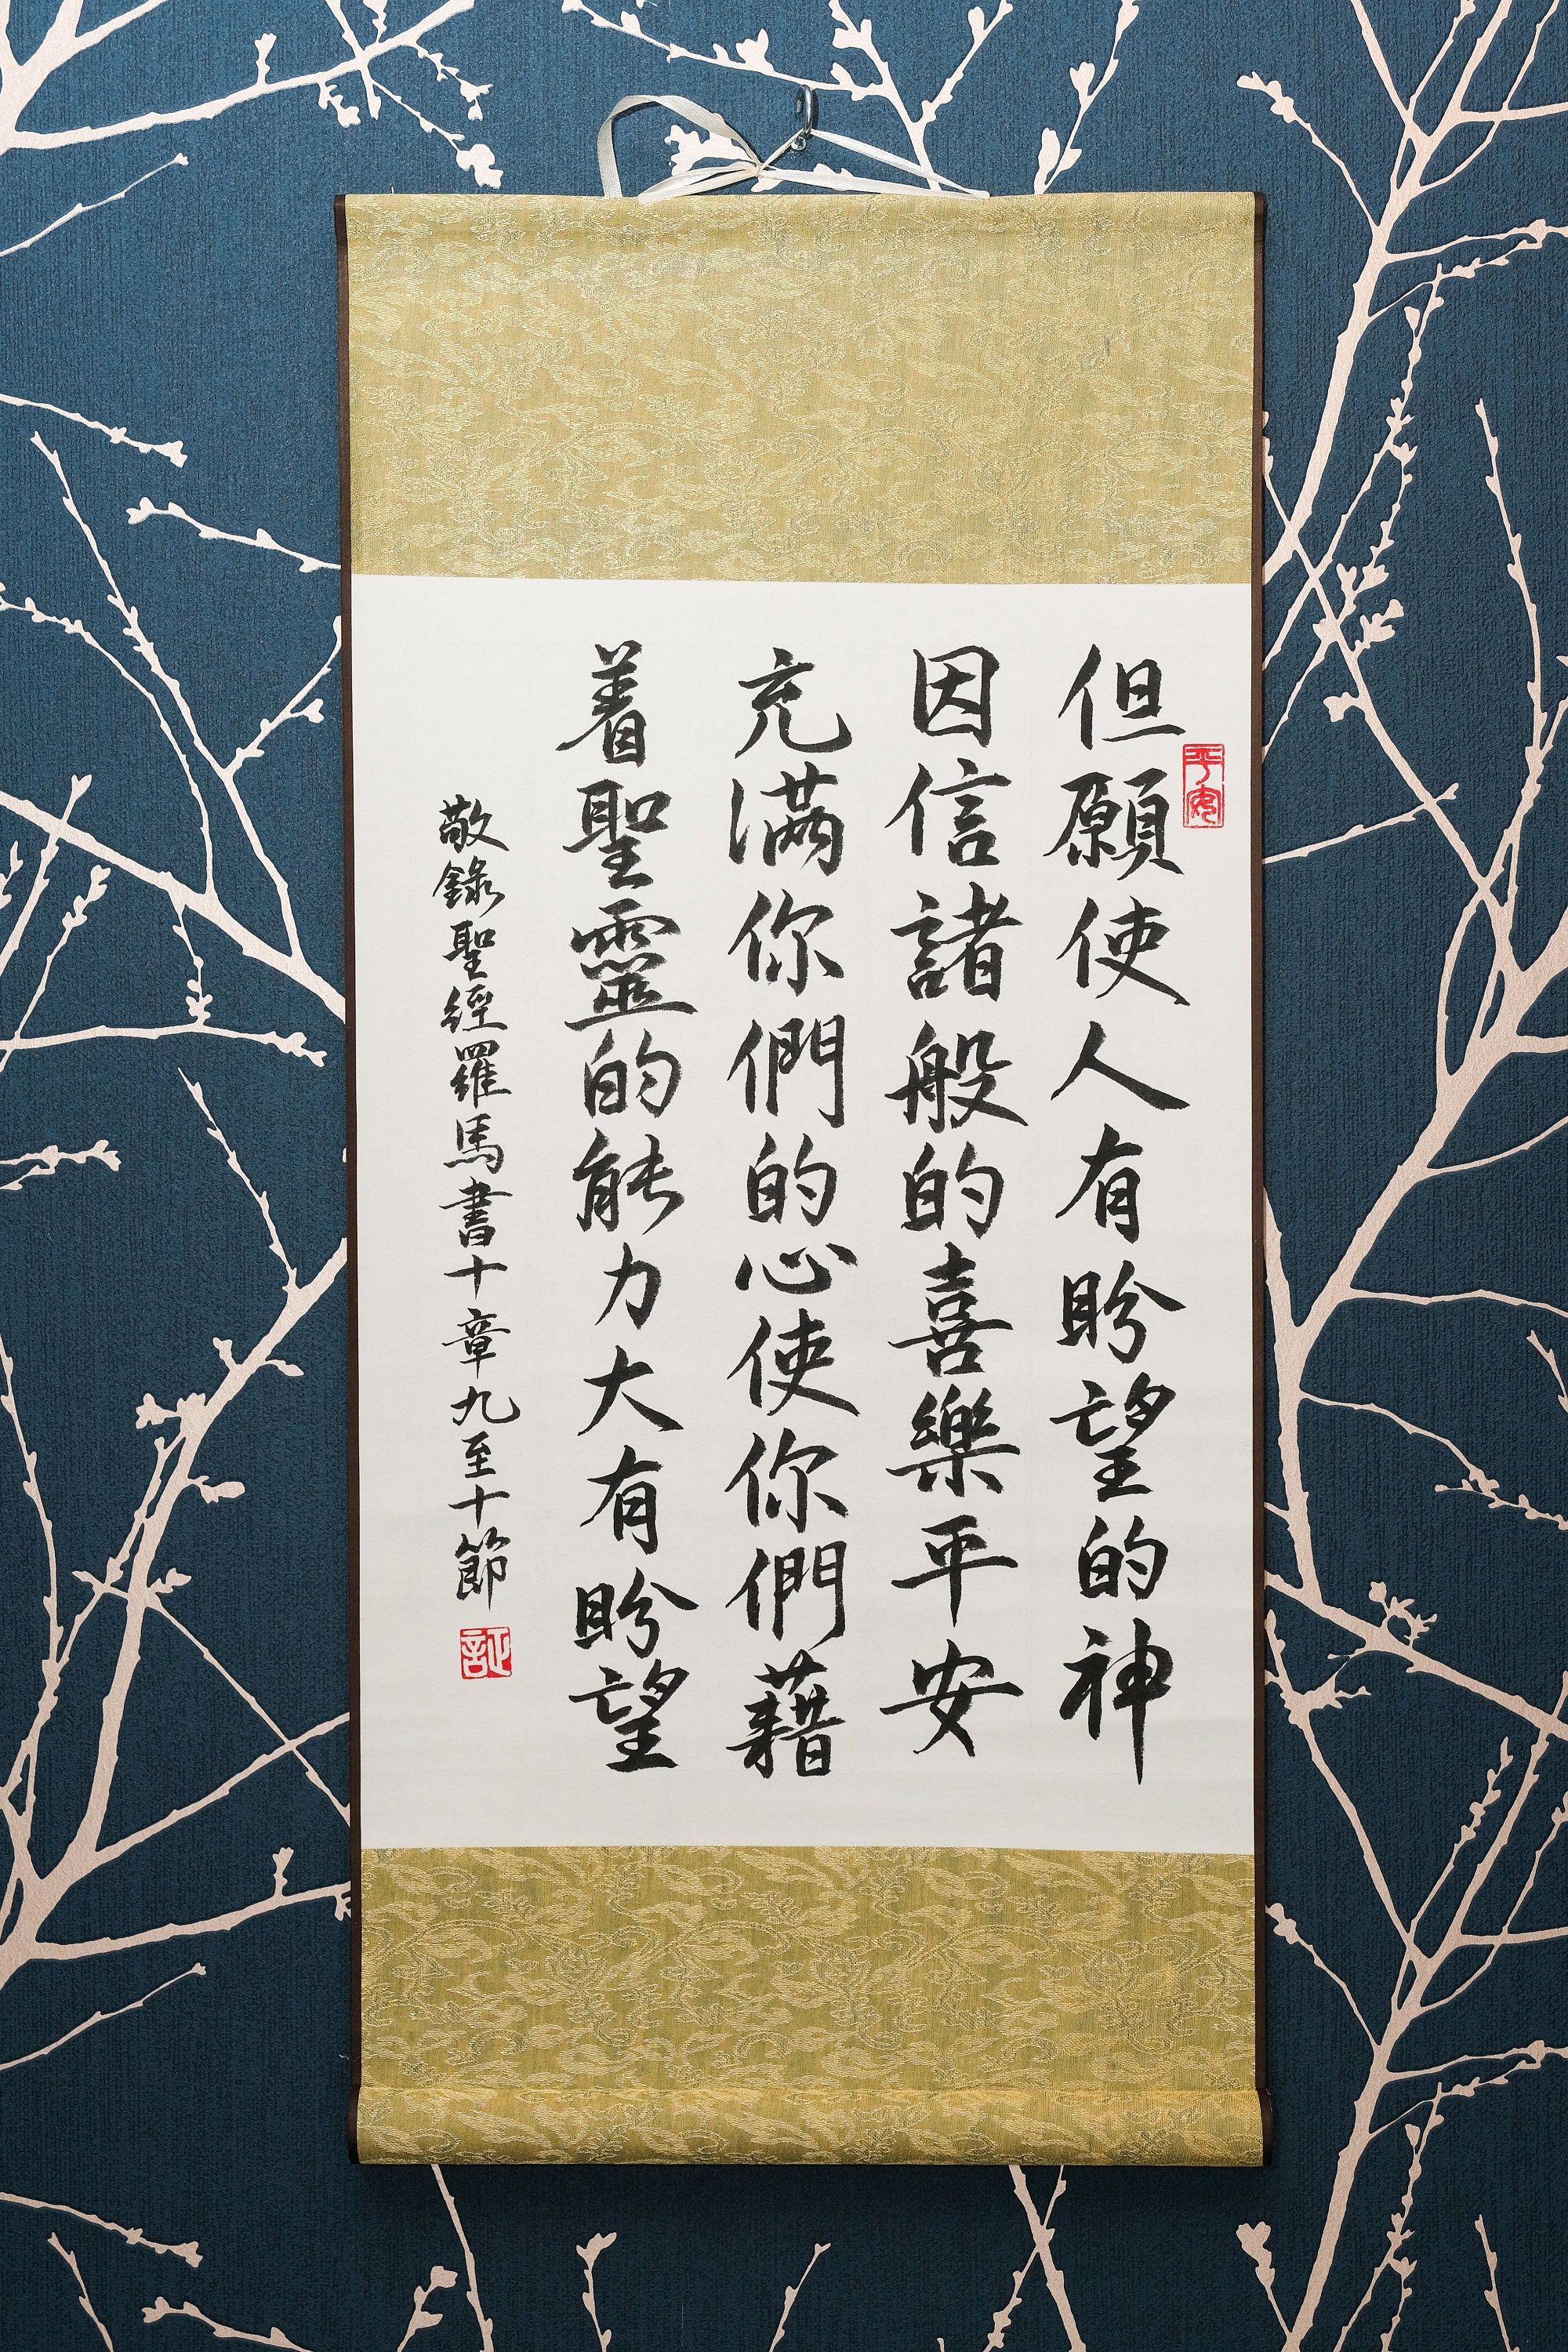 平安
但願使人有盼望的神
因信諸般的喜樂平安
充滿你們的心使你們藉
着聖靈的能力大有盼望
敬錄聖經羅馬書十章九至十節